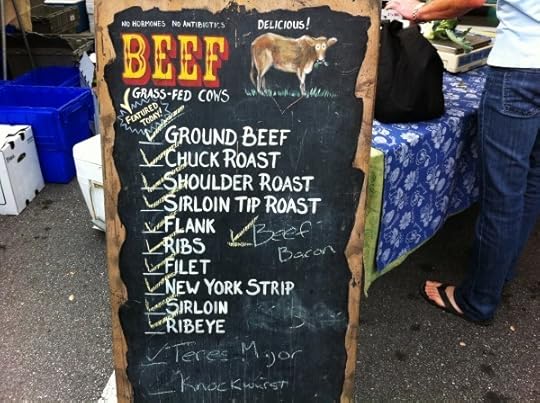 NO HORMONES NO ANTIBIOTICS
DELICIOUS!
BEEF
GRASS-FED COWS
FEATURED
TODAY!
GROUND BEEF
CHUCK ROAST
SHOULDER ROAST
SIRLOIN TIP ROAST
FLANK
Beef
Bacon
RIBS
FILET
NEW YORK STRIP
SIRLOIN
RIBEYE
Teres Major
Knockwurst